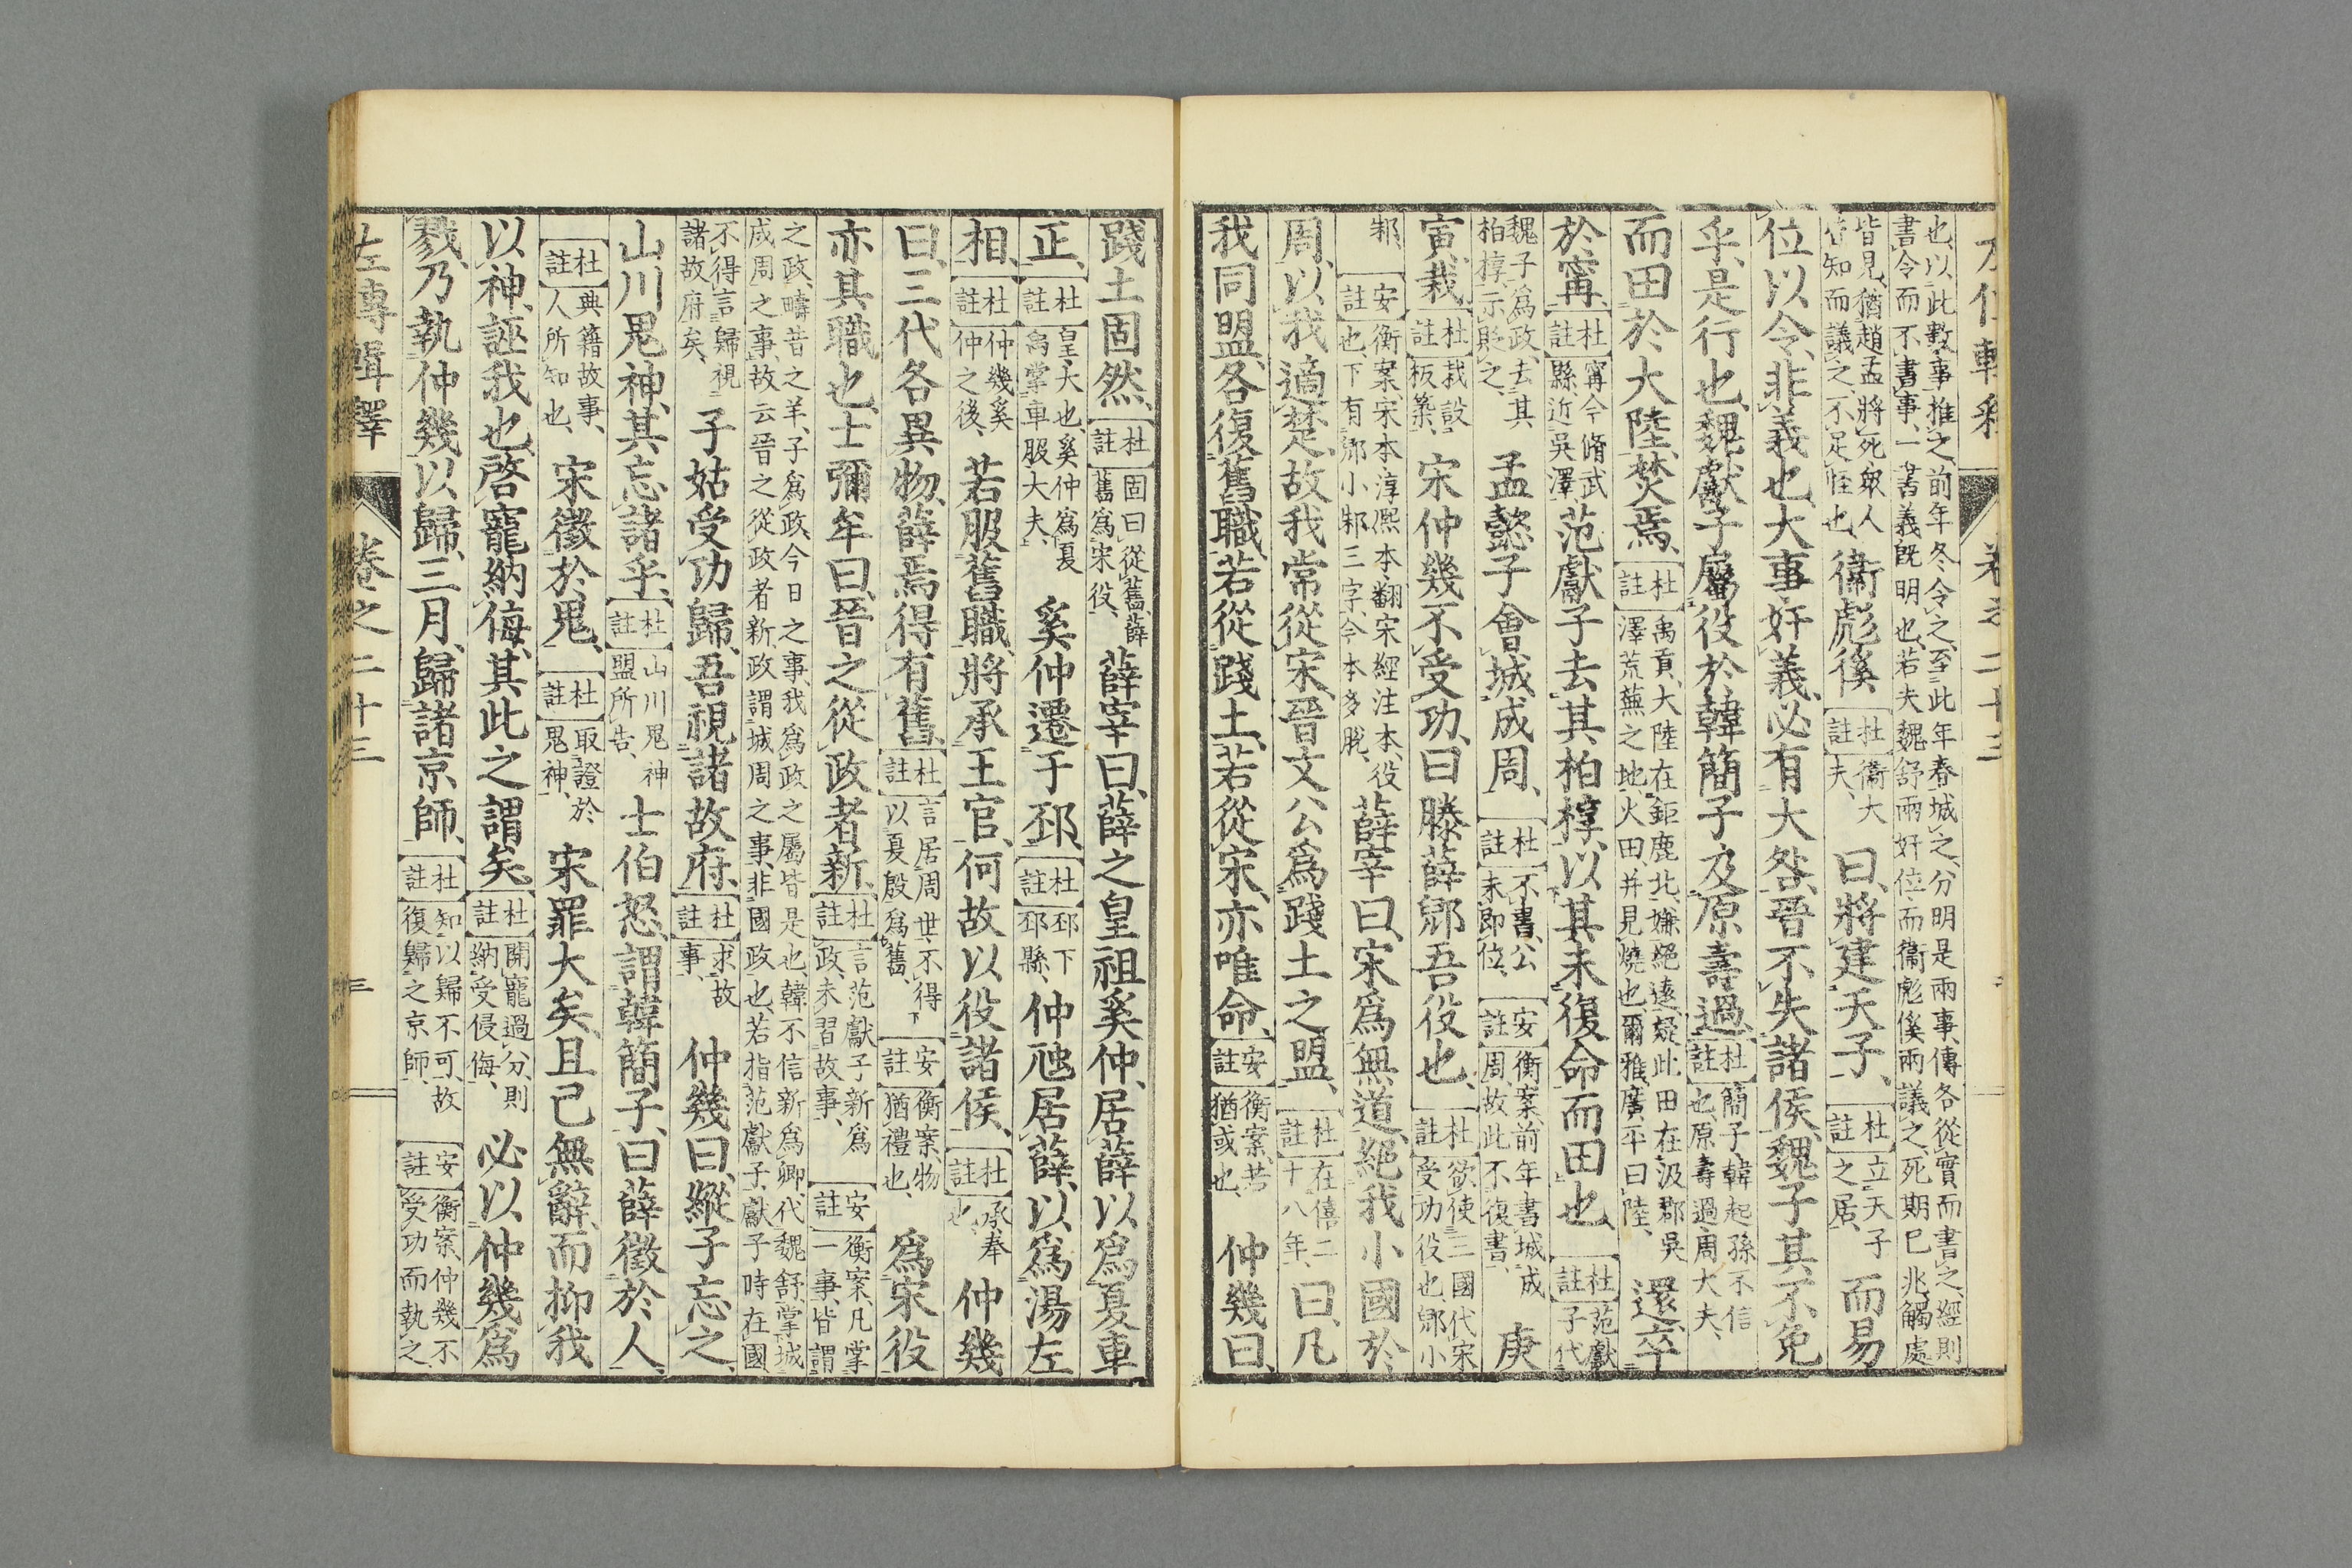 也以此數事推之前年冬令之至此年春城之分明是兩事傳各從實而書之經則
書令而不書事一書義既明也若夫魏舒兩奸位而衞彪傒兩議之死期已兆觸處
皆見猶趙孟將死衆人皆知而議之不足怪也衞彪傒杜註衞大夫曰將建天子杜註立天子之居而易
位以令非義也大事奸義必有大咎晉不失諸侯魏子其不免
乎是行也魏獻子屬役於韓簡子及原壽過杜註簡子韓起孫不信也原壽過周大夫
而田於大陸焚焉杜註禹貢大陸在鉅鹿北嫌絕遠疑此田在汲郡吳澤荒蕪之地火田并見燒也爾雅廣平曰陸還卒
於甯杜註甯今脩武縣近吳澤范獻子去其柏椁以其未復命而田也杜註范獻子代
魏子爲政去其柏椁示貶之孟懿子會城成周杜註不書公未卽位安註衡案前年書城成周故此不復書庚
寅栽杜註栽設板築宋仲幾不受功曰滕薛郳吾役也杜註欲使三國代宋受功役也郳小
邾安註衡案宋本淳熙本翻宋經注本役也下有郳小邾三字今本多脫薛宰曰宋爲無道絕我小國於
周以我適楚故我常從宋晉文公爲踐土之盟杜註在僖二十八年曰凡
我同盟各復舊職若從踐土若從宋亦唯命安註衡案若猶或也仲幾曰
踐土固然杜註固曰從舊薛舊爲宋役薛宰曰薛之皇祖奚仲居薛以爲夏車
正杜註皇大也奚仲爲夏禹掌車服大夫奚仲遷于邳杜註邳下邳縣仲虺居薛以爲湯左
相杜註仲幾奚仲之後若服舊職將承王官何故以役諸侯杜註承奉也仲幾
曰三代各異物薛焉得有舊杜註言居周世不得以夏殷爲舊安註衡案物猶禮也爲宋役
亦其職也士彌牟曰晉之從政者新杜註言范獻子新爲政未習故事安註衡案凡掌一事皆謂
之政疇昔之羊子爲政今日之事我爲政之屬皆是也韓不信新爲卿代魏舒掌城
成周之事故云晉之從政者新政謂城周之事非國政也若指范獻子獻子時在國
不得言歸視諸故府矣子姑受功歸吾視諸故府杜註求故事仲幾曰縱子忘之
山川鬼神其忘諸乎杜註山川鬼神盟所告士伯怒謂韓簡子曰薛徵於人
杜註典籍故事人所知也宋徵於鬼杜註取證於鬼神宋罪大矣且己無辭而抑我
以神誣我也啓寵納侮其此之謂矣杜註開寵過分則納受侵侮必以仲幾爲
戮乃執仲幾以歸三月歸諸京師杜註知以歸不可故復歸之京師安註衡案仲幾不受功而執之
左傳輯釋 卷之二十三 三